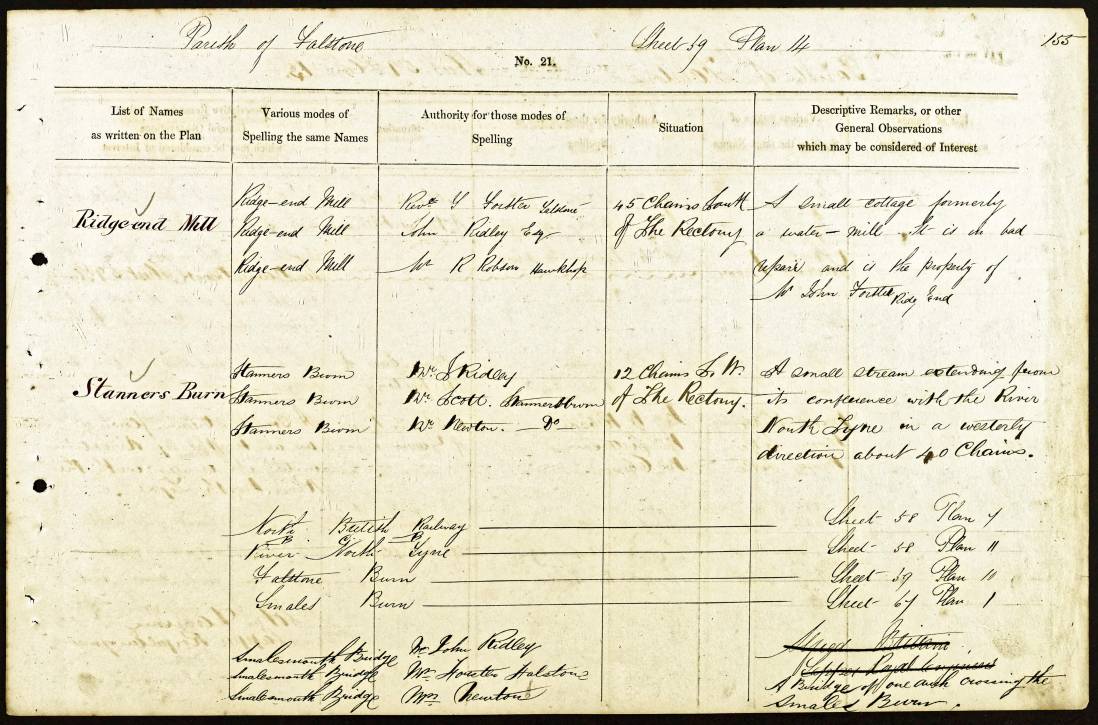 Parish of Falstone Sheet 59 Plan 14 155
No. 21.
List of Names
as written on the Plan
Various modes of
Spelling the same Names
Authority for those modes of
Spelling
Situation
Descriptive Remarks, or other
General Observations
which may be considered of Interest
Ridge end Mill
Ridge-end Mill
Ridge-end Mill
Ridge-end Mill
Revd
John Ridley Esq
Mr R Robson Hawkhope
45 Chains South
of The Rectory
A small cottage formerly
a water-mill It is in bad
repair and is the property of
Mr John Forster Ridge End
Stanners Burn
Stanners Burn
Stanners Burn
Stanners Burn
Mr J Ridley
Mr Scott. Stannersburn
Mr Newton. - Do -
12 Chains S. W.
of The Rectory.
A small stream extending from
its conference with the River
North Tyne in a westerly
direction about 40 Chains.
North British Railway Sheet 58 Plan
River North Tyne Sheet 58 Plan 11
Falstone Burn Sheet 59 Plan 10
Smales Burn Sheet 67 Plan 1
Smalesmouth Bridge
Smalesmouth Bridge
Smalesmouth Bridge
Mr John Ridley
Mr Forster Falstone
Mr Newton
A Bridge of one arch crossing the
Smales Burn.